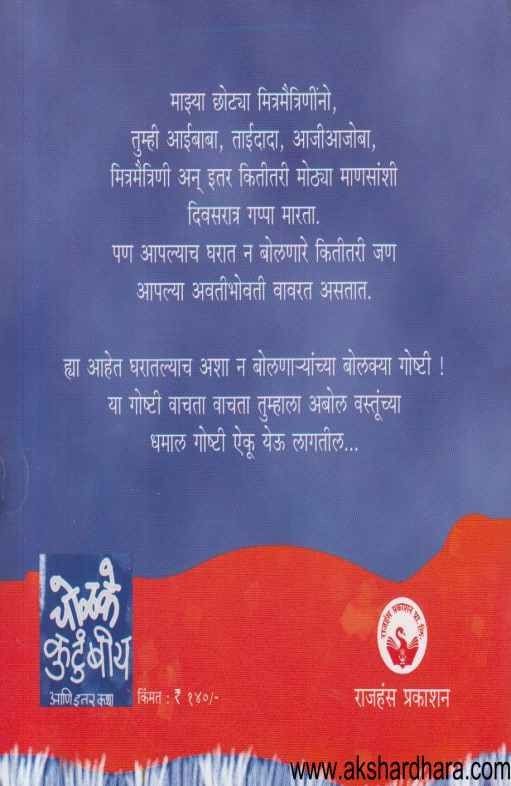 माझ्या छोट्या मित्रमैत्रिणींनो,
तुम्ही आईबाबा, ताईदादा, आजीआजोबा,
मित्रमैत्रिणी अन् इतर कितीतरी मोठ्या माणसांशी
दिवसरात्र गप्पा मारता.
पण आपल्याच घरात न बोलणारे कितीतरी जण
आपल्या अवतीभोवती वावरत असतात.
ह्या आहेत घरातल्याच अशा न बोलणाऱ्यांच्या बोलक्या गोष्टी !
या गोष्टी वाचता वाचता तुम्हाला अबोल वस्तूंच्या
धमाल गोष्टी ऐकू येऊ लागतील...
कुटुंबीय
आणि इतर कथा
किंमत : ₹ १४०/-
राजहंस प्रकाशन प्रा. लि.
राजहंस प्रकाशन
www.akshardhara.com